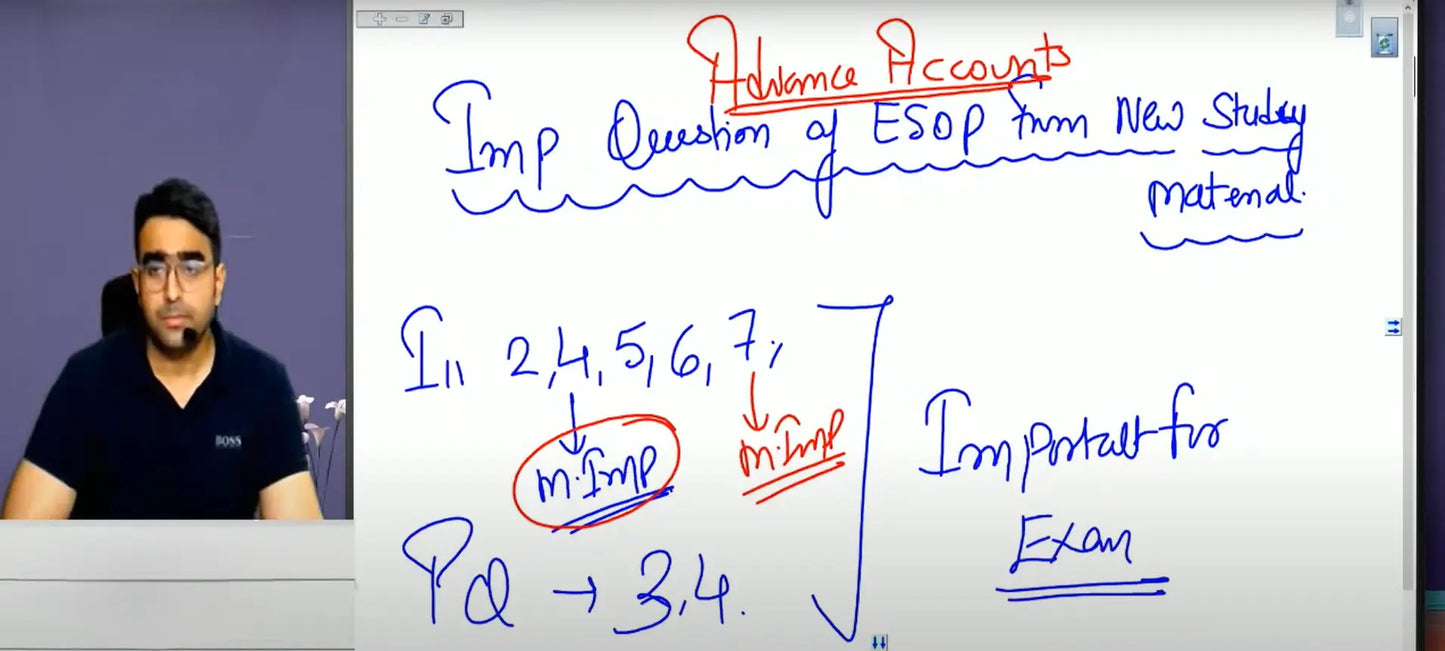 Advance Accounts
Imp Question of ESOP from New Study
Material.
Ill 2, 4, 5, 6, 7,
M.Imp
M.Imp
Important for
Exam
PQ → 3, 4.
BOSS